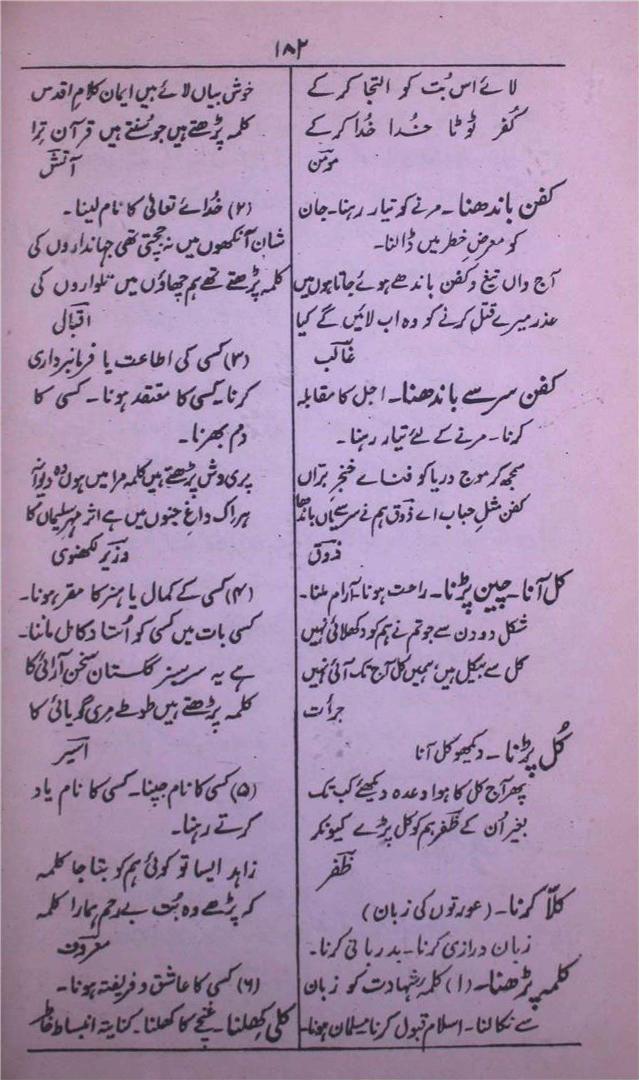 ۱۸۲
لائے اس بُت کو التجا کرکے
کُفر ٹوٹا خُدا خُدا کرکے
مومن
کفن باندھنا۔ مرنے کو تیار رہنا۔ جان
کو معرض خطر میں ڈالنا۔
آج واں تیغ و کفن باندھے ہوئے جاتا ہوں میں
عذر میرے قتل کرنے کو وہ اب لائیں گے کیا
غالب
کفن سر سے باندھنا۔ اجل کا مقابلہ
کرنا۔ مرنے کے لئے تیار رہنا۔
سمجھ کر موج دریا کو فنائے خنجر برّاں
کفن مثل حباب اے ذوق ہم نے سر سے یاں باندھا
ذوق
کل آنا۔ چین پڑنا۔ راحت ہونا۔ آرام ملنا۔
شکل دو دن سے جو تم نے ہم کو دکھلائی نہیں
کل سے بیکل ہیں، ہمیں کل آج تک آئی نہیں
جرأت
کُل پڑنا۔ دیکھو کل آنا
پھر آج کل کا ہوا وعدہ دیکھئے کب تک
بغیر اُن کے ظفر ہم کو کل پڑے کیونکر
ظفر
کلّا کرنا۔ (عورتوں کی زبان)
زبان درازی کرنا۔ بدزبانی کرنا۔
کلمہ پڑھنا۔ (۱) کلمہ شہادت کو زبان
سے نکالنا۔ اسلام قبول کرنا مسلمان ہونا۔
خوش بیاں لائے ہیں ایمان کلام اقدس
کلمہ پڑھتے ہیں جو سُنتے ہیں قرآن ترا
آتش
(۲) خُدائے تعالیٰ کا نام لینا۔
شان آنکھوں میں نہ جچتی تھی جہانداروں کی
کلمہ پڑھتے تھے ہم چھاؤں میں تلواروں کی
اقبال
(۳) کسی کی اطاعت یا فرمانبرداری
کرنا۔ کسی کا معتقد ہونا۔ کسی کا
دم بھرنا۔
پری وش پڑھتے ہیں کلمہ مرا میں ہوں وہ دیوانہ
ہر اک داغ جنوں میں ہے اثر مہر سلیماں کا
وزیر لکھنوی
(۴) کسی کے کمال یا ہنر کا مقر ہونا۔
کسی بات میں کسی کو اُستاد کامل ماننا۔
ہے یہ سرسبز گلستان سخن آرائی کا
کلمہ پڑھتے ہیں طوطے مری گویائی کا
اسیر
(۵) کسی کا نام جپنا۔ کسی کا نام یاد
کرتے رہنا۔
زاہد ایسا تو کوئی ہم کو بتا جا کلمہ
کہ پڑھے وہ بُت بے رحم ہمارا کلمہ
معروف
(۶) کسی کا عاشق و فریفتہ ہونا۔
کلی کِھلنا۔ غنچے کا کھلنا۔ کنایۃ انبساط خاطر